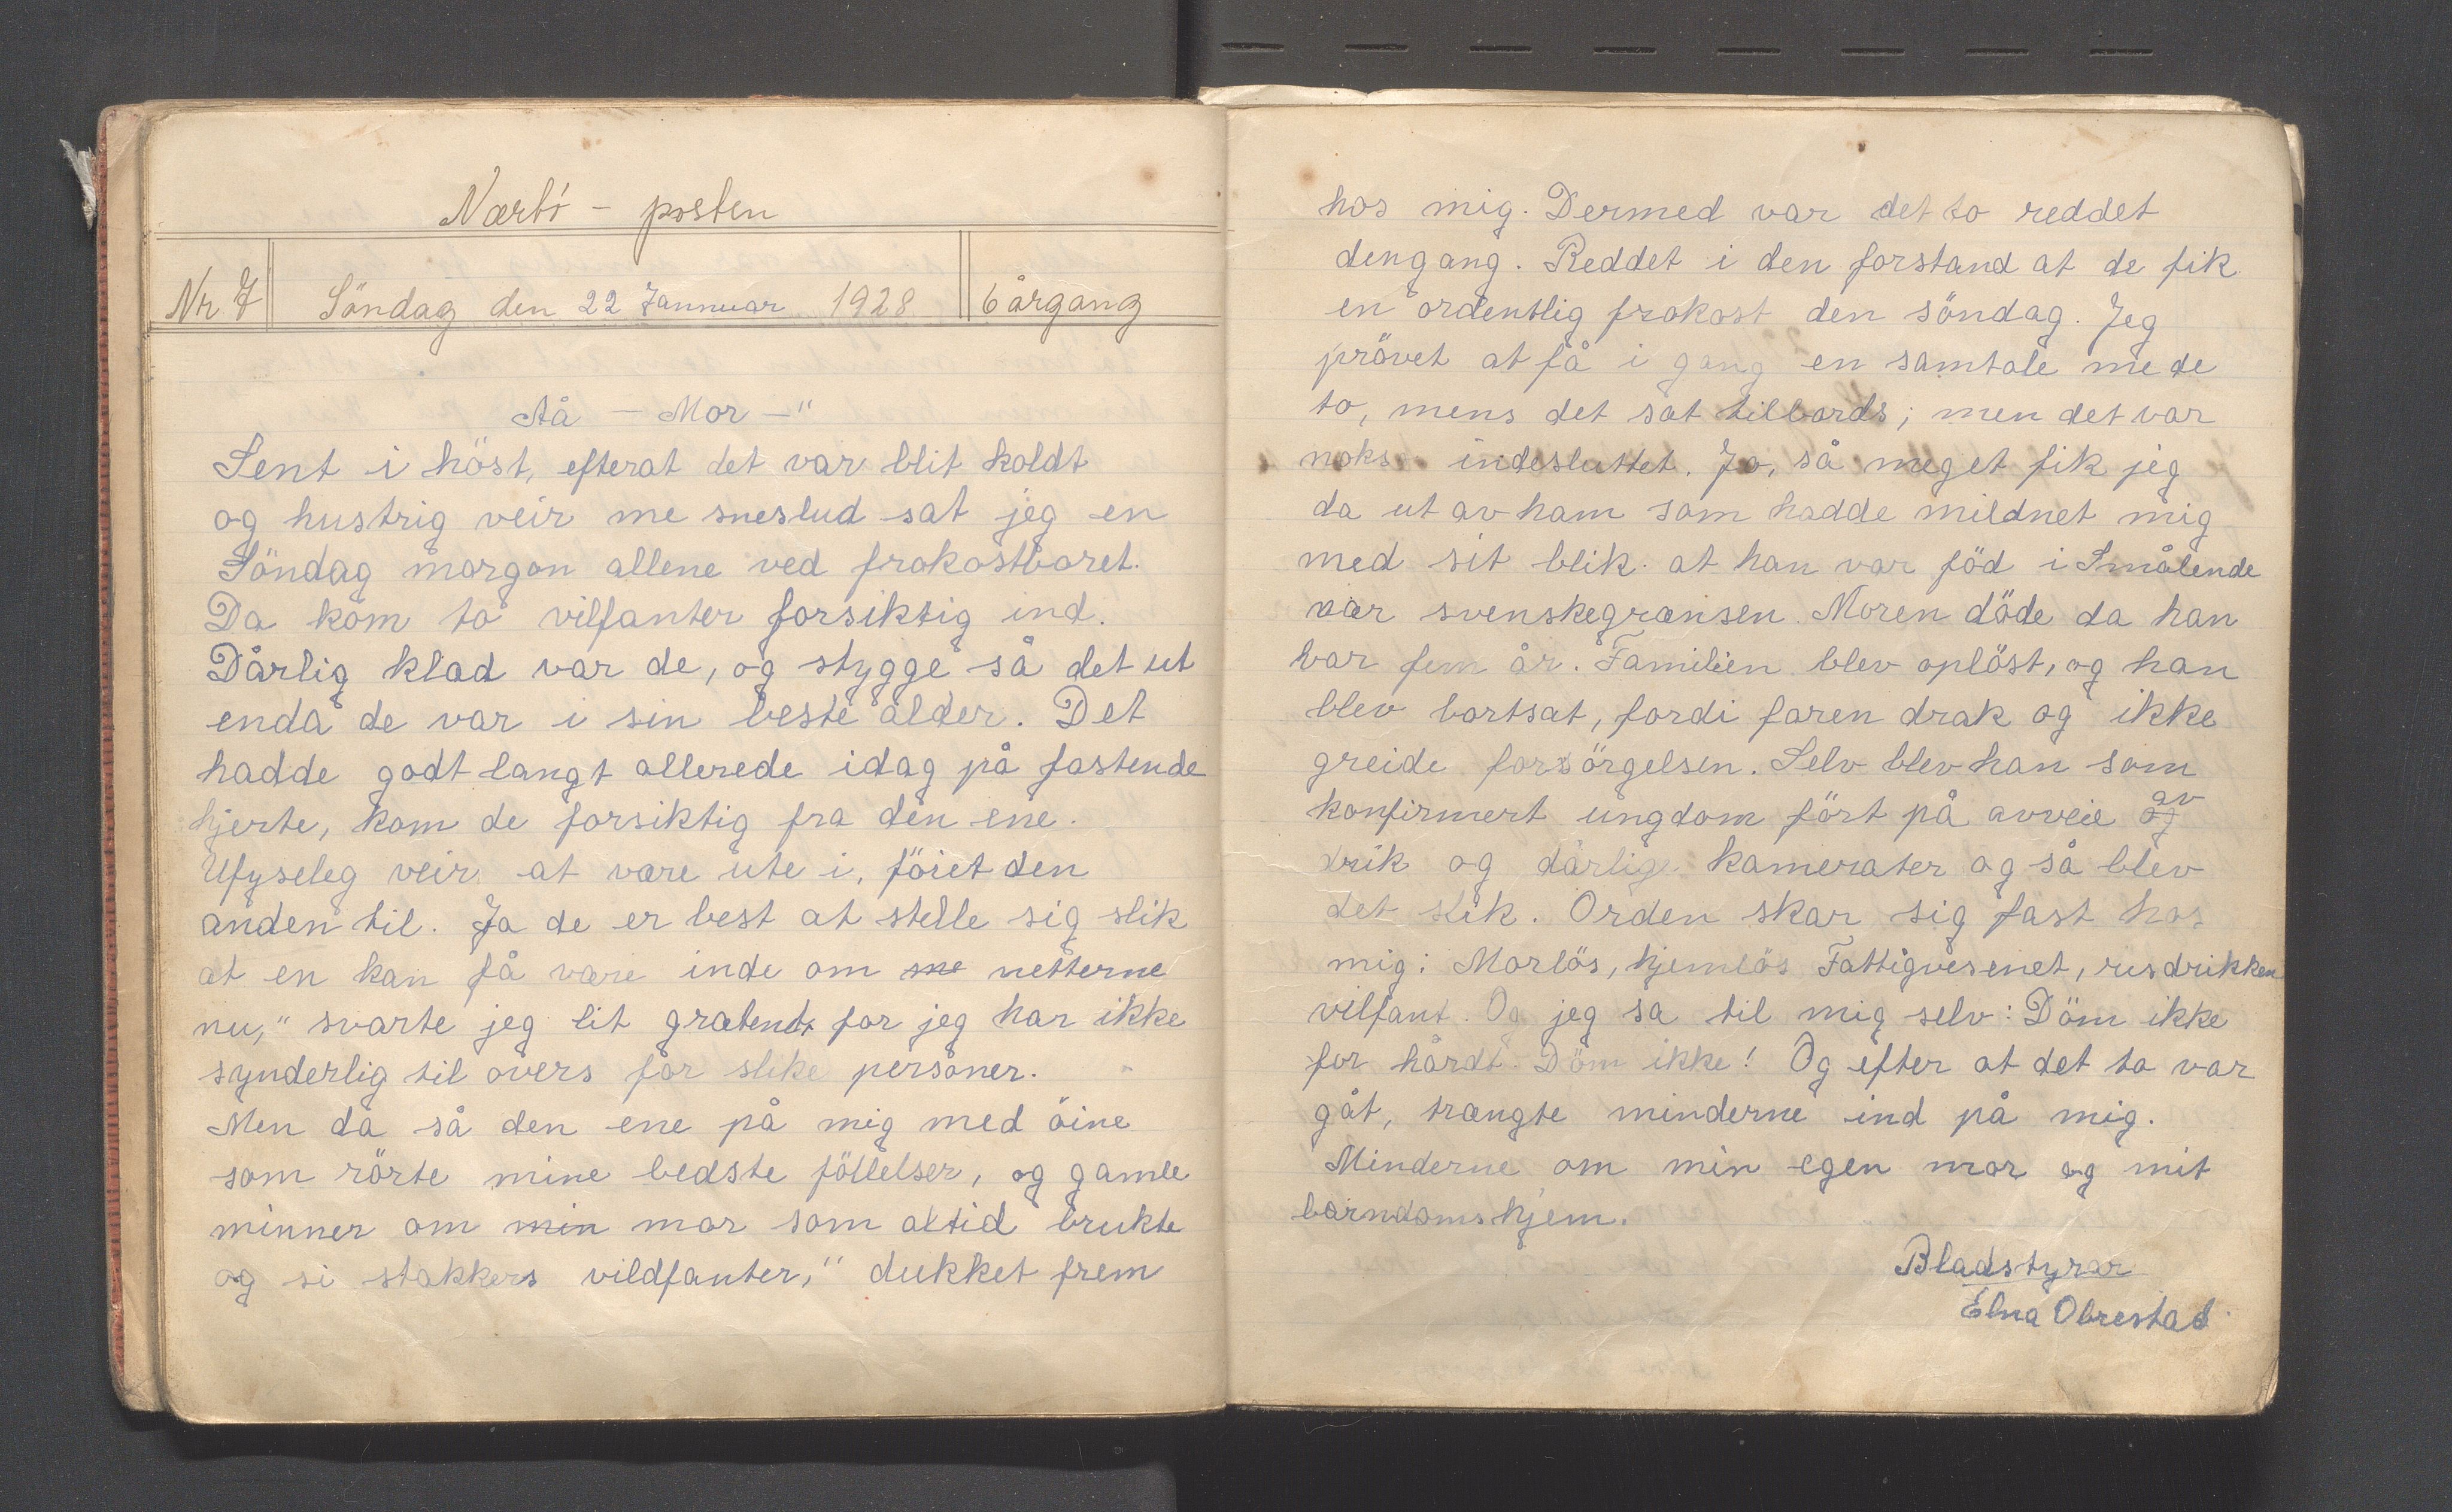 Nærbö - posten
Nr. 7 Söndag den 22 Januar 1928 6 årgang
Aå - Mor -"
Sent i höst, efterat det var blit koldt
og hustrig veir me sneslud sat jeg en
Söndag morgon allene ved frokostboret.
Da kom to vilfanter forsiktig ind.
Dårlig klæd var de, og stygge så det ut
enda de var i sin beste alder. Det
hadde godt langt allerede idag på fastende
hjerte, kom de forsiktig fra den ene.
Ufyseleg veir at være ute i, föiet den
anden til. Ja de er best at stelle sig slik
at en kan få være inde om me netterne
nu," svarte jeg lit grætent for jeg har ikke
synderlig til overs for slike personer.
Men da så den ene på mig med öine
som rörte mine bedste föllelser, og gamle
minner om min mor som altid brukte
og si stakkers vildfanter," dukket frem
hos mig. Dermed var det to reddet
dengang. Reddet i den forstand at de fik
en ordentlig frokost den söndag. Jeg
prövet at få i gang en samtale me de
to, mens det sat tilbords; men det var
nokså indesluttet. Jo, så meget fik jeg
da ut av ham som hadde mildnet mig
med sit blik. at han var föd i Smålende
nær svenskegrænsen. Moren döde da han
var fem år. Familien blev oplöst, og han
blev bortsat, fordi faren drak og ikke
greide forsörgelsen. Selv blev han som
konfirmert ungdom fört på avveie av
drik og dårlige kamerater og så blev
det slik. Orden skar sig fast hos
mig: Morlös, hjemlös Fattigvesenet, rusdrikken
vilfant. Og jeg sa til mig selv: Döm ikke
for hårdt. Döm ikke! Og efter at det to var
gåt, trængte minderne ind på mig.
Minderne om min egen mor og mit
barndomshjem.
Bladstyrar
Elna Obrestad